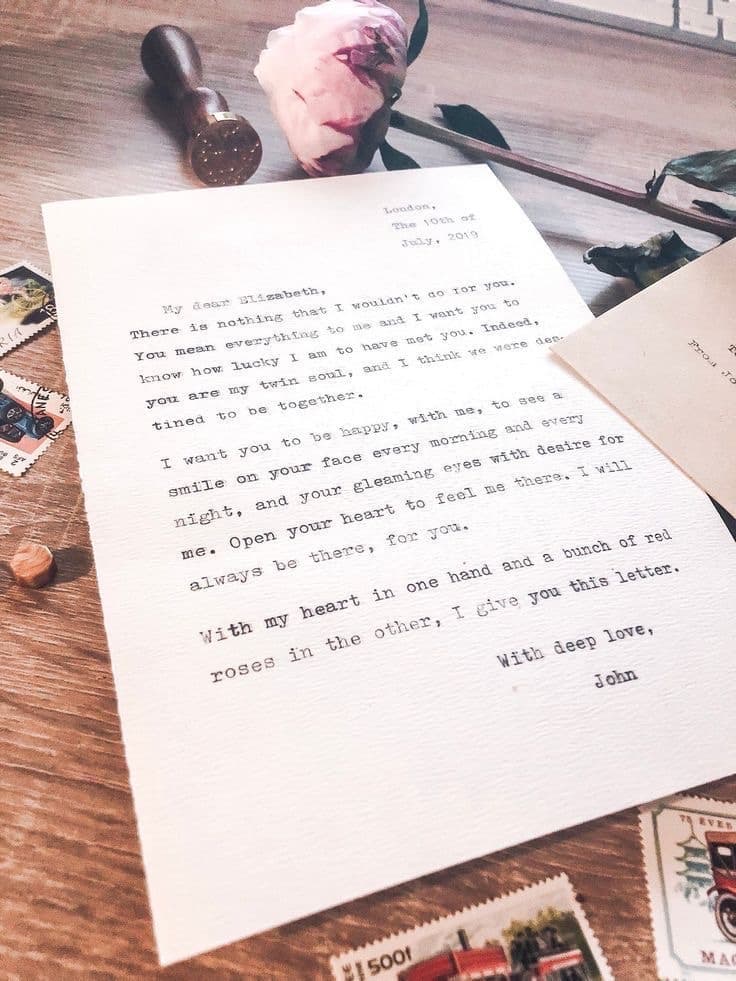 London,
The 10th of
July, 2019
My dear Elizabeth,
There is nothing that I wouldn't do for you.
You mean everything to me and I want you to
know how lucky I am to have met you. Indeed,
you are my twin soul, and I think we were des-
tined to be together.
I want you to be happy, with me, to see a
smile on your face every morning and every
night, and your gleaming eyes with desire for
me. Open your heart to feel me there. I will
always be there, for you.
With my heart in one hand and a bunch of red
roses in the other, I give you this letter.
With deep love,
John
From Jo
500f